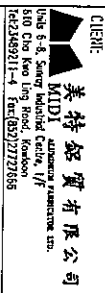 CLIENT:
美特鋁質有限公司
MIDI ALUMINIUM FABRICATOR LTD.
Unit 6-8, Sunray Industrial Centre, 1/F
610 Cha Kwo Ling Road, Kowloon
Tel:23489211-4 Fax:(852)27727666